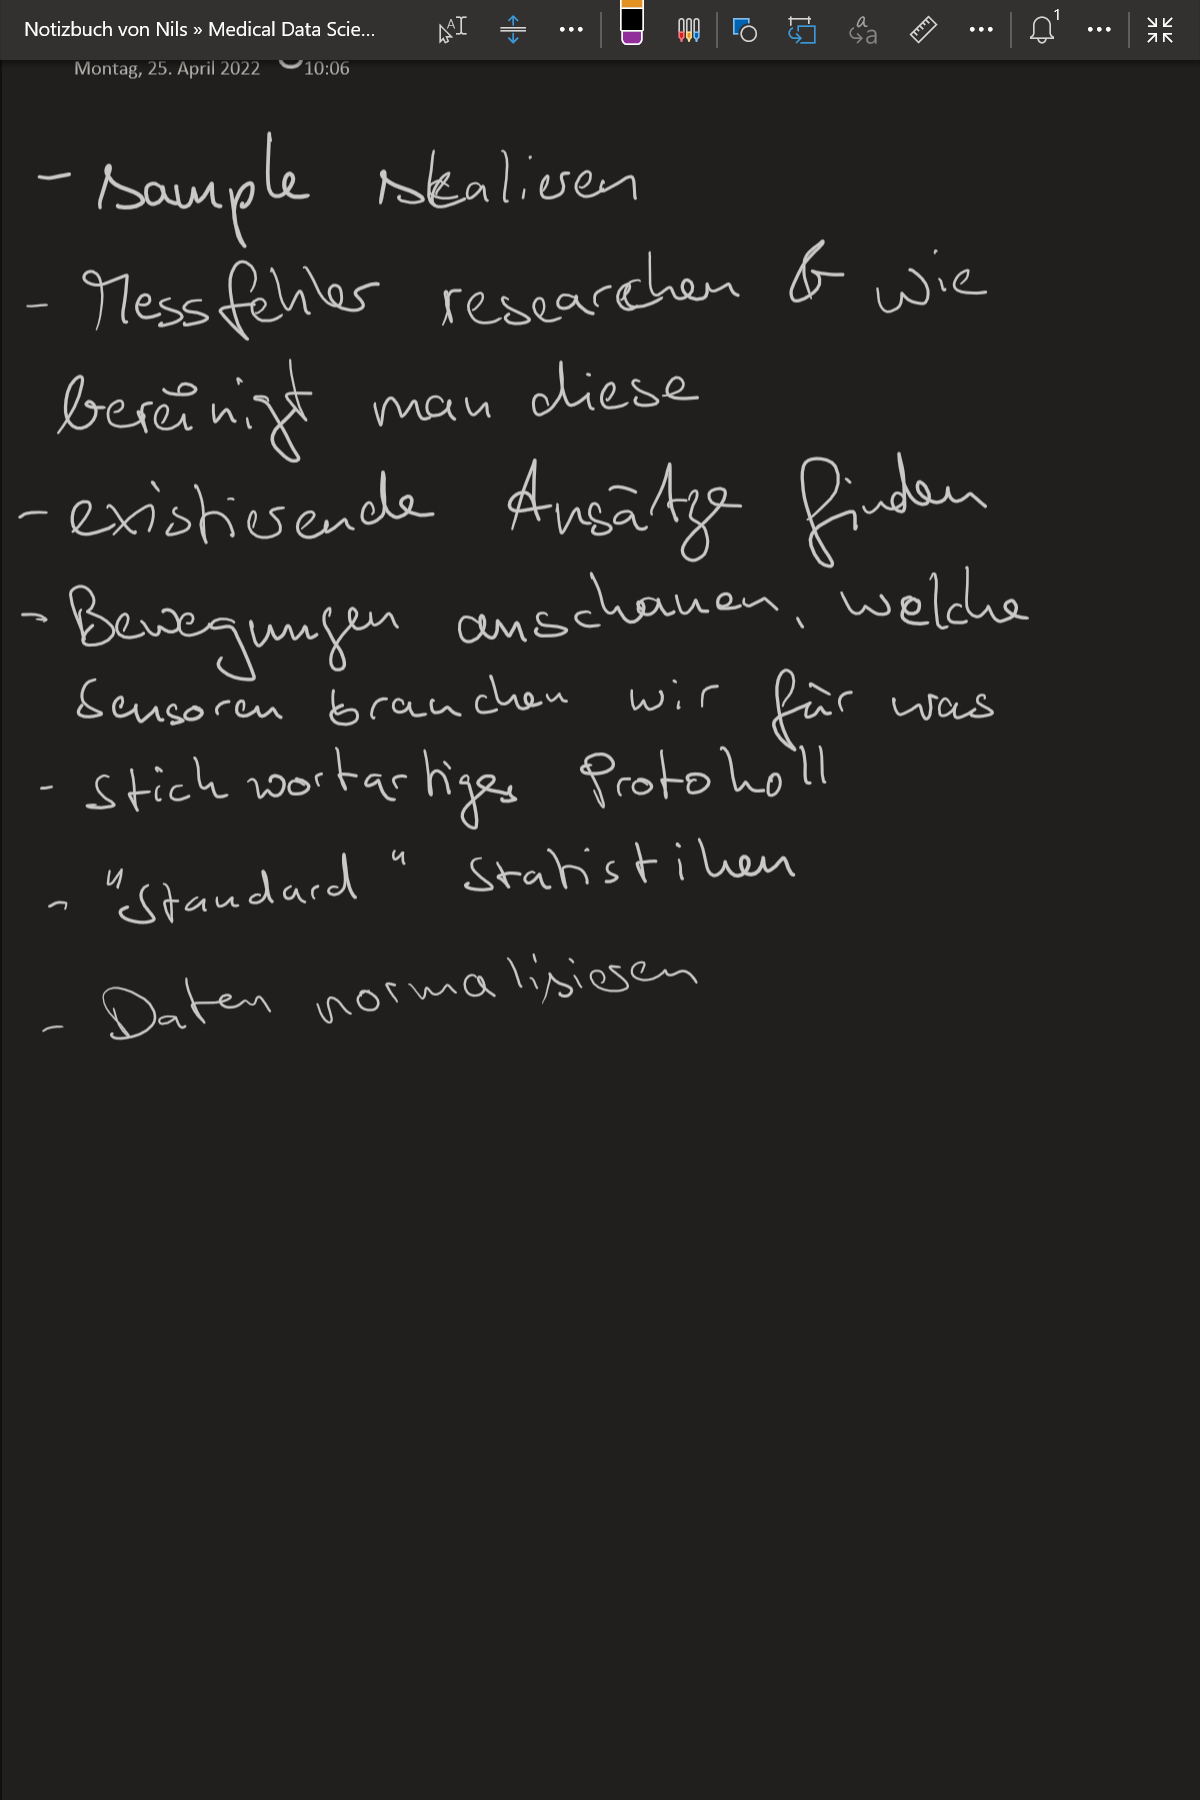 Notizbuch von Nils » Medical Data Scie...
Montag, 25. April 2022 10:06
- sample skalieren
- Messfehler researchen & wie
bereinigt man diese
- existierende Ansätze finden
- Bewegungen anschauen, welche
Sensoren brauchen wir für was
- Stichwortartiges Protokoll
- "Standard" Statistiken
- Daten normalisieren